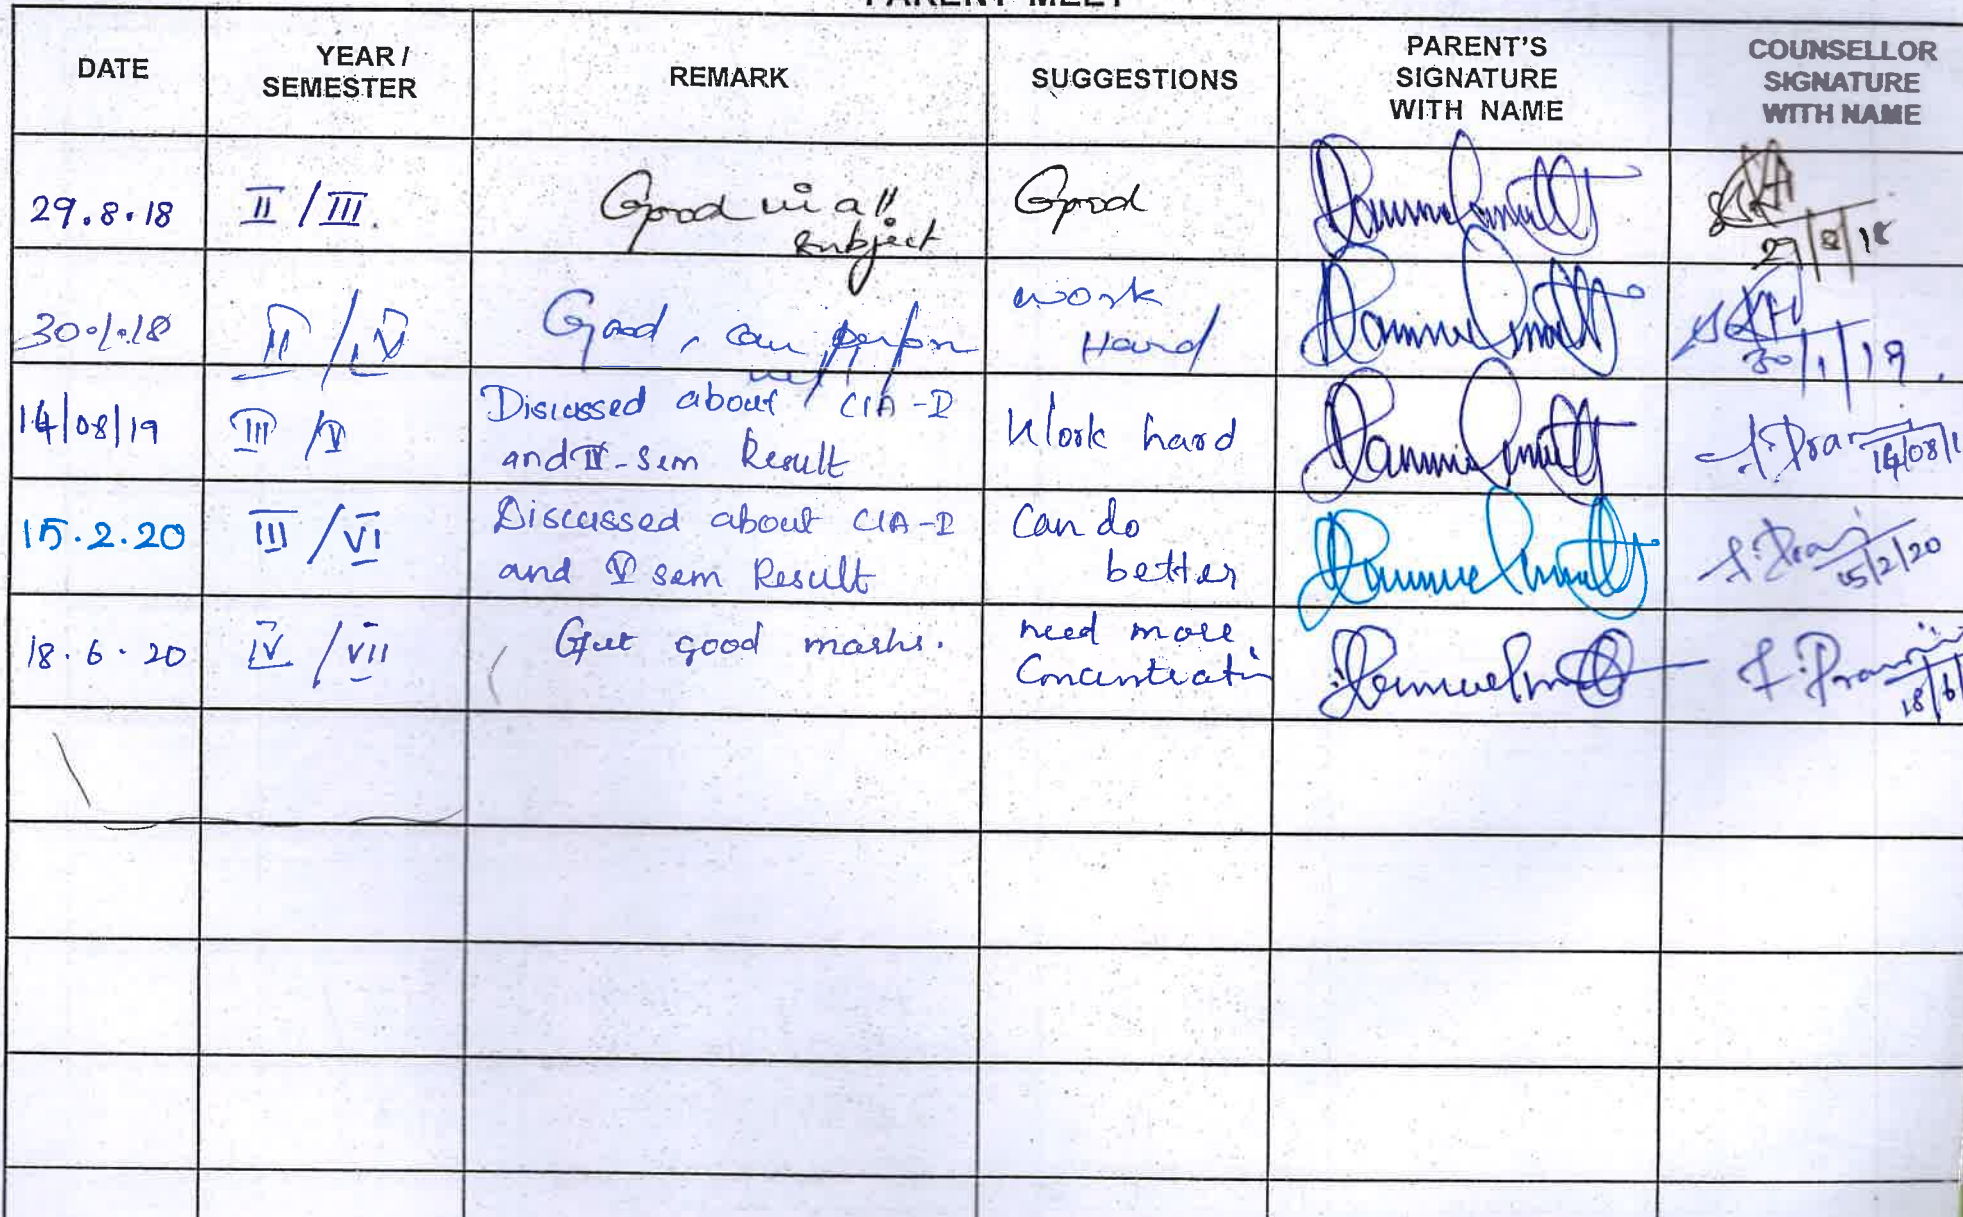 PARENT MEET
DATE
YEAR /
SEMESTER
REMARK
SUGGESTIONS
PARENT'S
SIGNATURE
WITH NAME
COUNSELLOR
SIGNATURE
WITH NAME
29.8.18
II / III.
Good in all
subject
Good
29/8/18
30.1.18
II / IV
Good, can perform
well
work
Hard
30/1/19.
14/08/19
III / V
Discussed about CIA-I
and IV-Sem Result
Work hard
14/08/1
15.2.20
III / VI
Discussed about CIA-I
and V sem Result
Can do
better
15/2/20
18.6.20
IV / VII
Get good marks.
need more
Concentratin
18/6/